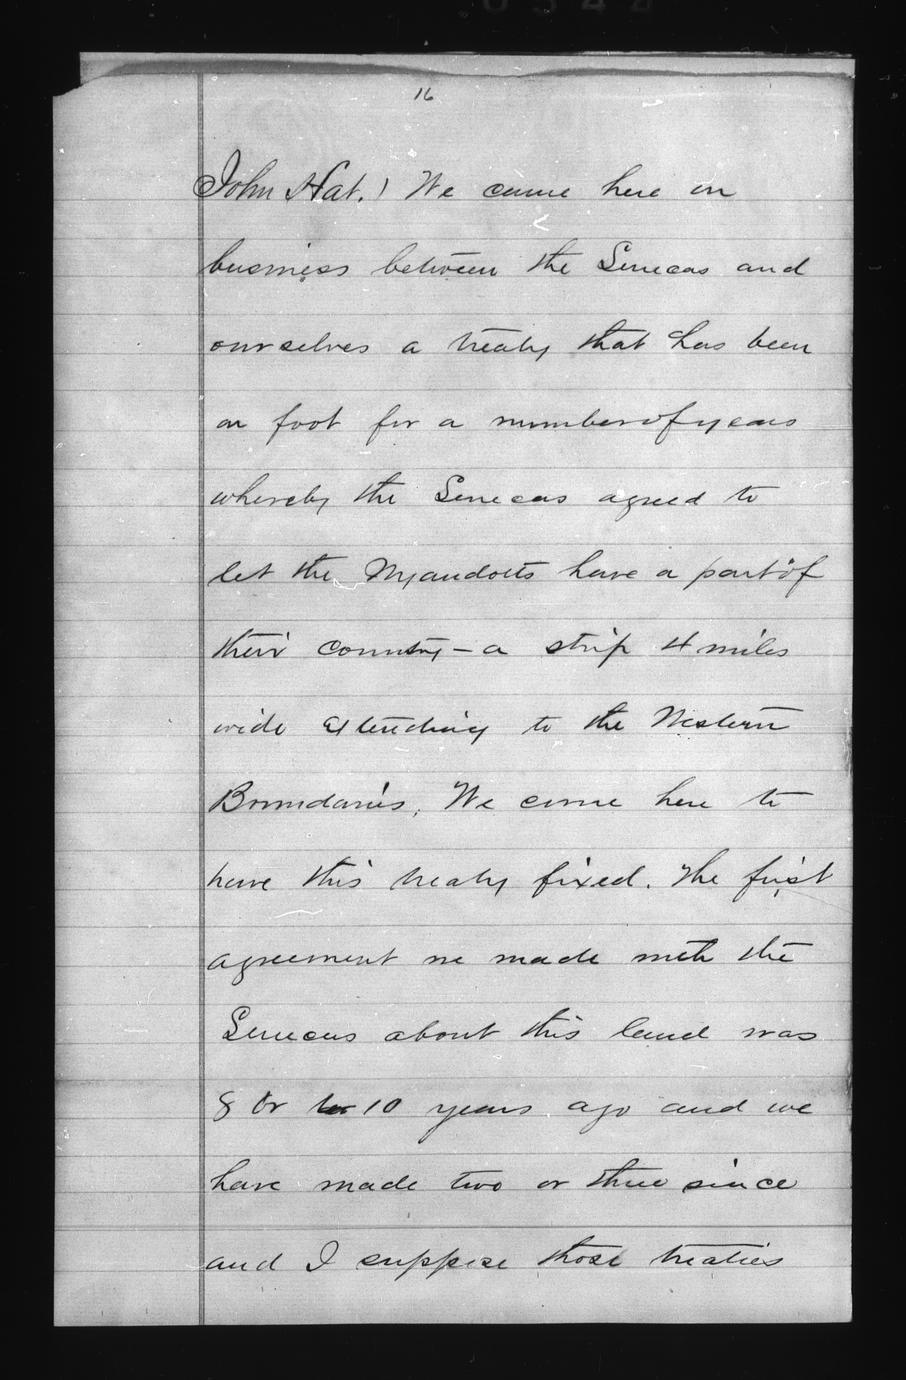 16
John Hat.) We came here on
business between the Senecas and
ourselves a treaty that has been
on foot for a number of years
whereby the Senecas agreed to
let the Wyandotts have a part of
their country - a strip 4 miles
wide extending to the Western
Boundaries. We come here to
have this treaty fixed. The first
agreement we made with the
Senecas about this land was
8 or 10 years ago and we
have made two or three since
and I suppose those treaties